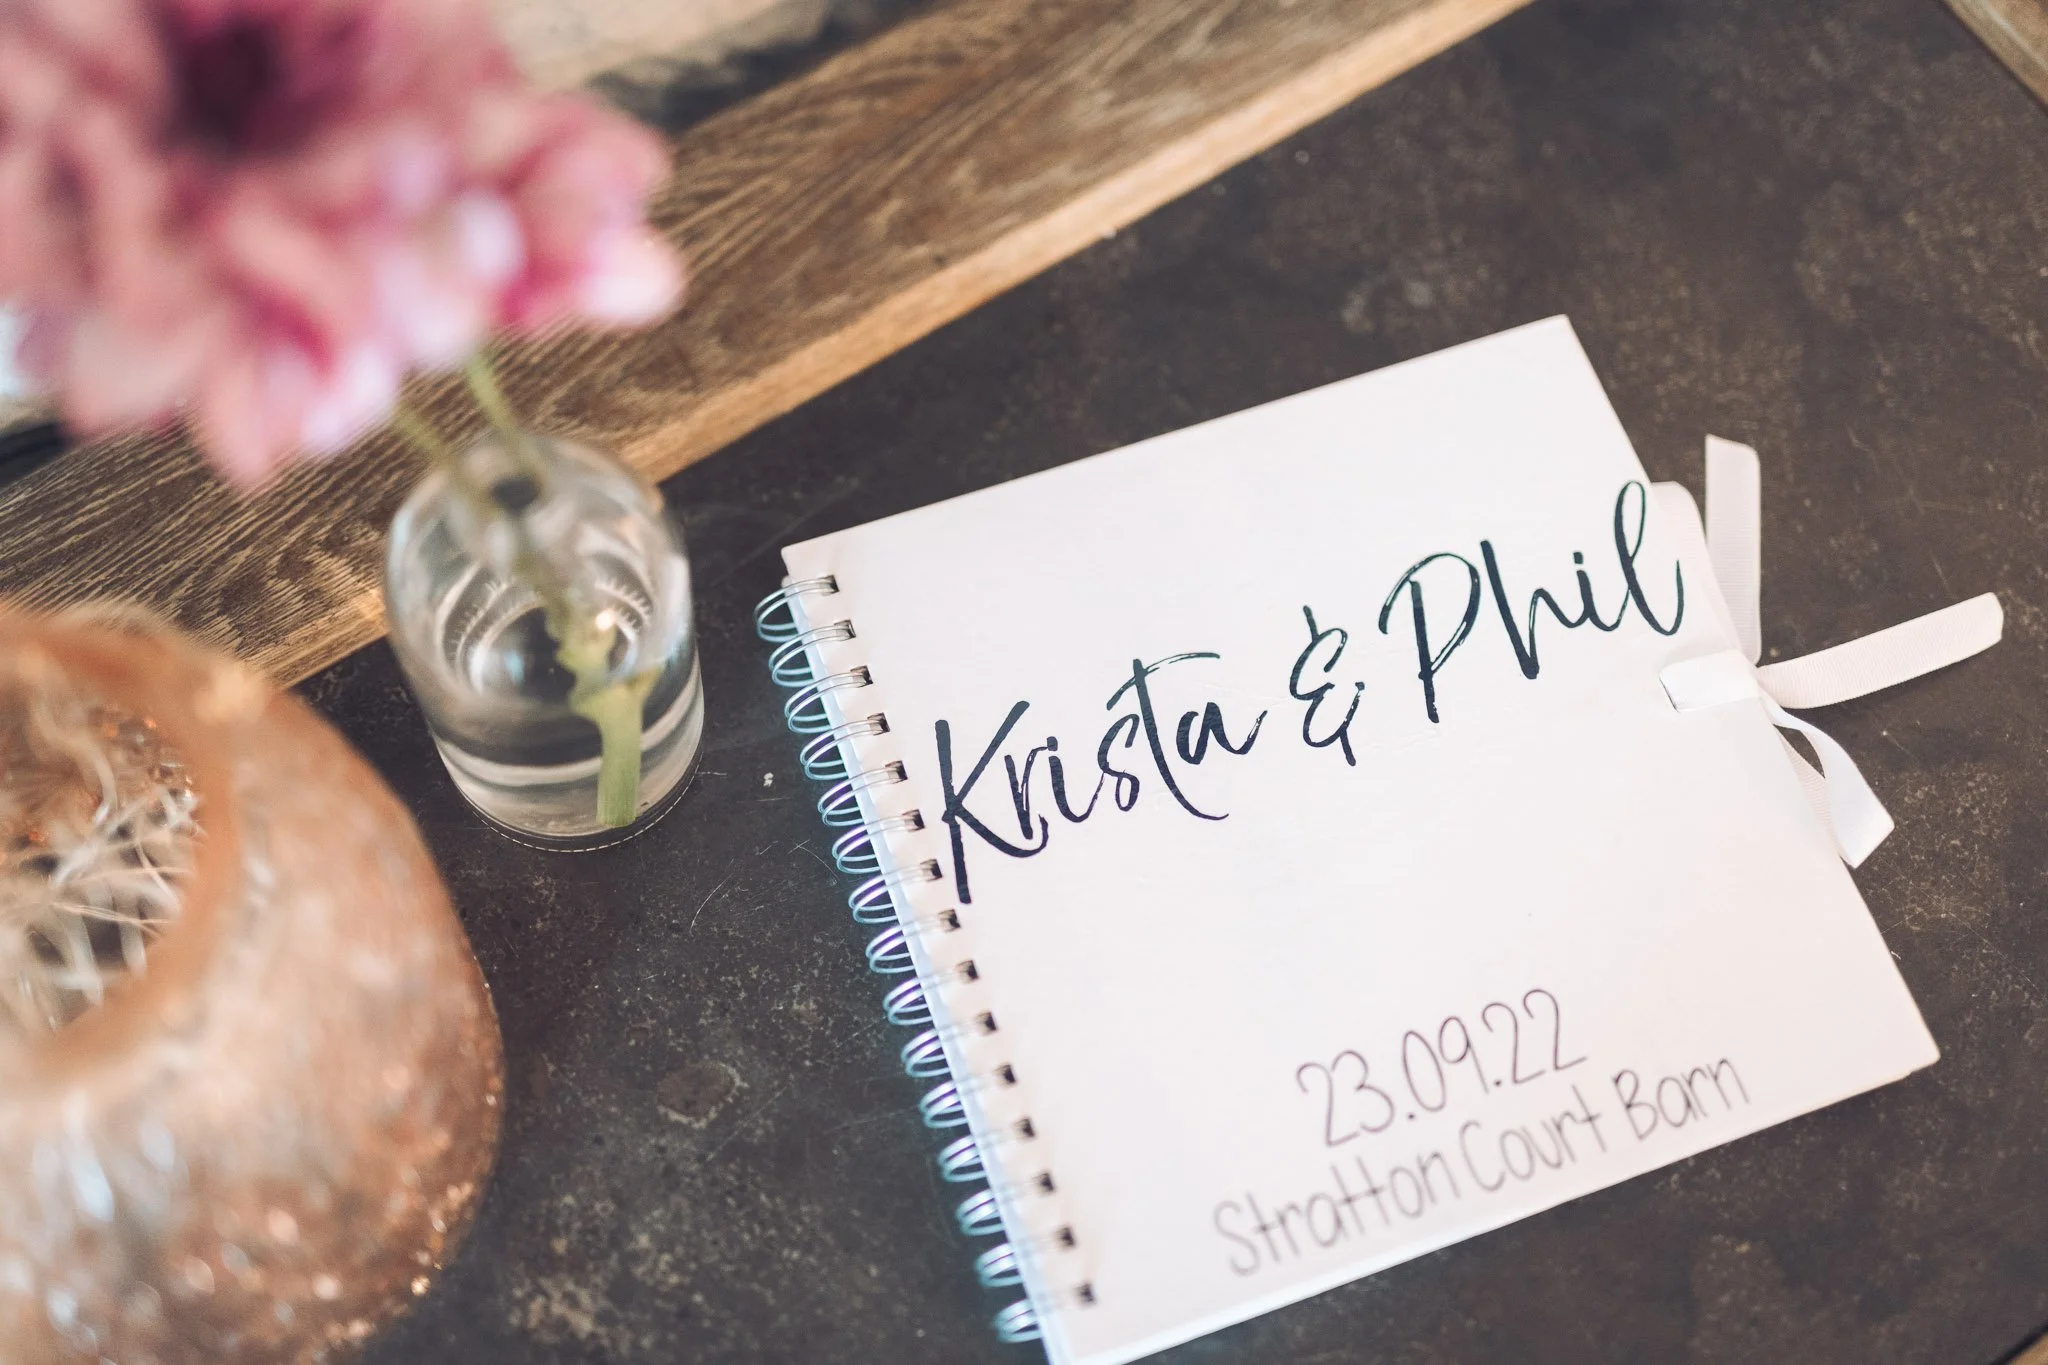 Krista & Phil
23.09.22
Stratton Court Barn